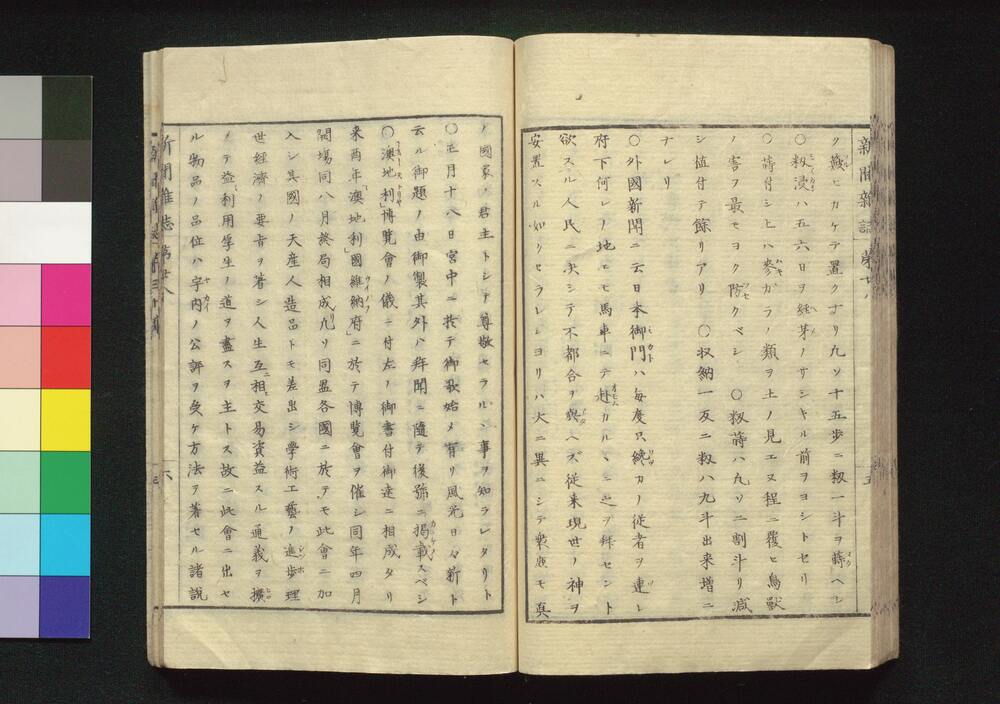 ク蓻ヒカケテ置クナリ凡ソ十五歩ニ籾一斗ヲ蒔ヘシ
〇籾浸ハ五六日ヲ経芽ノサシキル前ヲヨシトセリ
〇蒔付シ上ハ麥ガラノ類ヲ土ノ見エヌ程ニ覆ヒ鳥獣
ノ害ヲ最モヨク防クベシ 〇籾蒔ハ凡ソ二割斗リ減
シ植付テ餘リアリ 〇収納一反ニ籾八九斗出来増ニ
ナレリ
〇外國新聞ニ云日本御門ハ毎度只纔カノ従者ヲ連レ
府下何レノ地ヘモ馬車ニテ赴カルヽニ之ヲ拜セント
欲スル人民ニ决シテ不都合ヲ與ヘズ従来現世ノ神ヲ
安置スル如クセラレシヨリハ大ニ異ニシテ衆庶モ真
ノ國家ノ君主トシテ尊敬セラルヽ事ヲ知ラレタリト
〇正月十八日宮中ニ於テ御歌始メ有リ風光日々新ト
云ル御題ノ由御製其外ハ拜聞ニ隨テ後號ニ掲載スベシ
〇澳地利博覧會ノ儀ニ付左ノ御書付御達ニ相成タリ
来酉年澳地利國維納府ニ於テ博覧會ヲ催シ同年四月
開場同八月終局相成凡ソ同盟各國ニ於テモ此會ニ加
入シ其國ノ天産人造品トモ差出シ學術工藝ノ進歩理
世経濟ノ要旨ヲ著シ人生互ニ相交易資益スル通義ヲ擴
メテ益利用厚生ノ道ヲ盡スヲ主トス故ニ此會ニ出セ
ル物品ノ品位ハ宇内ノ公評ヲ受ケ方法ヲ著セル諸説